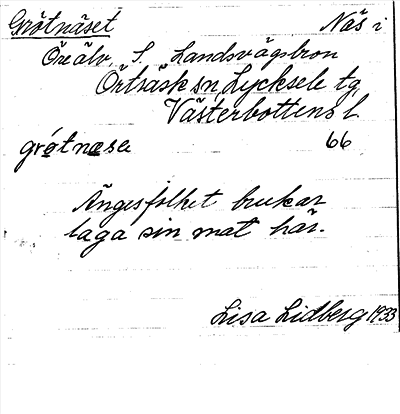 Grötnäset Näs i
Öreälv S. Landsvägsbron
Örträsk sn, Lycksele tg,
Västerbottens l.
grøtnæsɐ 66
Ängesfolket brukar
laga sin mat här.
Lisa Lidberg 1933